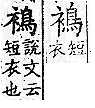 䙚短衣
䙚說文云短衣也